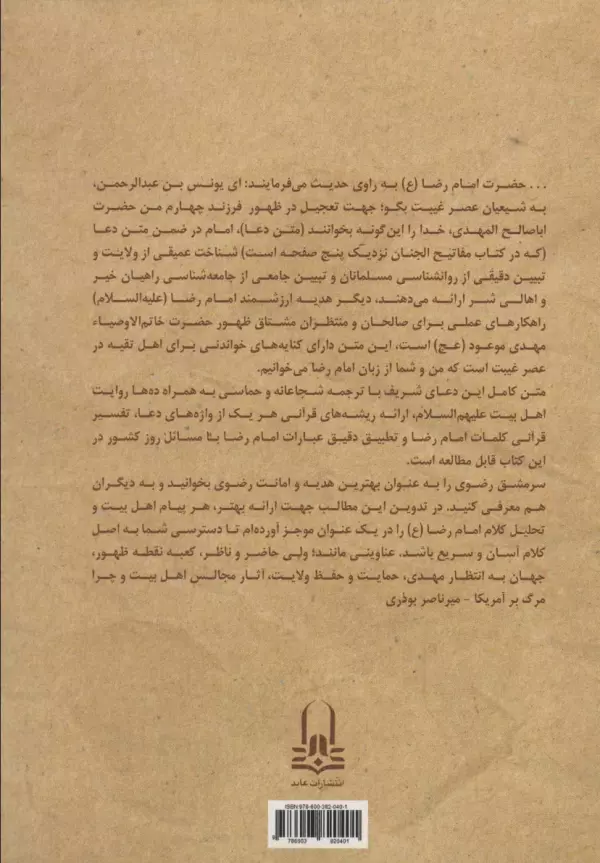 ... حضرت امام رضا (ع) به راوی حدیث می‌فرمایند: ای یونس بن عبدالرحمن،
به شیعیان عصر غیبت بگو؛ جهت تعجیل در ظهور فرزند چهارم من حضرت
اباصالح المهدی، خدا را این‌گونه بخوانند (متن دعا)، امام در ضمن متن دعا
(که در کتاب مفاتیح الجنان نزدیک پنج صفحه است) شناخت عمیقی از ولایت و
تبیین دقیقی از روانشناسی مسلمانان و تبیین جامعی از جامعه‌شناسی راهیان خیر
و اهالی شر ارائه می‌دهند، دیگر هدیه ارزشمند امام رضا (علیه‌السلام)
راهکارهای عملی برای صالحان و منتظران مشتاق ظهور حضرت خاتم‌الاوصیاء
مهدی موعود (عج) است، این متن دارای کنایه‌های خواندنی برای اهل تقیه در
عصر غیبت است که من و شما از زبان امام رضا می‌خوانیم.
متن کامل این دعای شریف با ترجمه شجاعانه و حماسی به همراه ده‌ها روایت
اهل بیت علیهم‌السلام، ارائه ریشه‌های قرآنی هر یک از واژه‌های دعا، تفسیر
قرآنی کلمات امام رضا و تطبیق دقیق عبارات امام رضا با مسائل روز کشور در
این کتاب قابل مطالعه است.
سرمشق رضوی را به عنوان بهترین هدیه و امانت رضوی بخوانید و به دیگران
هم معرفی کنید. در تدوین این مطالب جهت ارائه بهتر، هر پیام اهل بیت و
تحلیل کلام امام رضا (ع) را در یک عنوان موجز آورده‌ام تا دسترسی شما به اصل
کلام آسان و سریع باشد. عناوینی مانند؛ ولی حاضر و ناظر، کعبه نقطه ظهور،
جهان به انتظار مهدی، حمایت و حفظ ولایت، آثار مجالس اهل بیت و چرا
مرگ بر آمریکا - میرناصر بوذری
انتشارات عابد
ISBN: 978-600-362-040-1